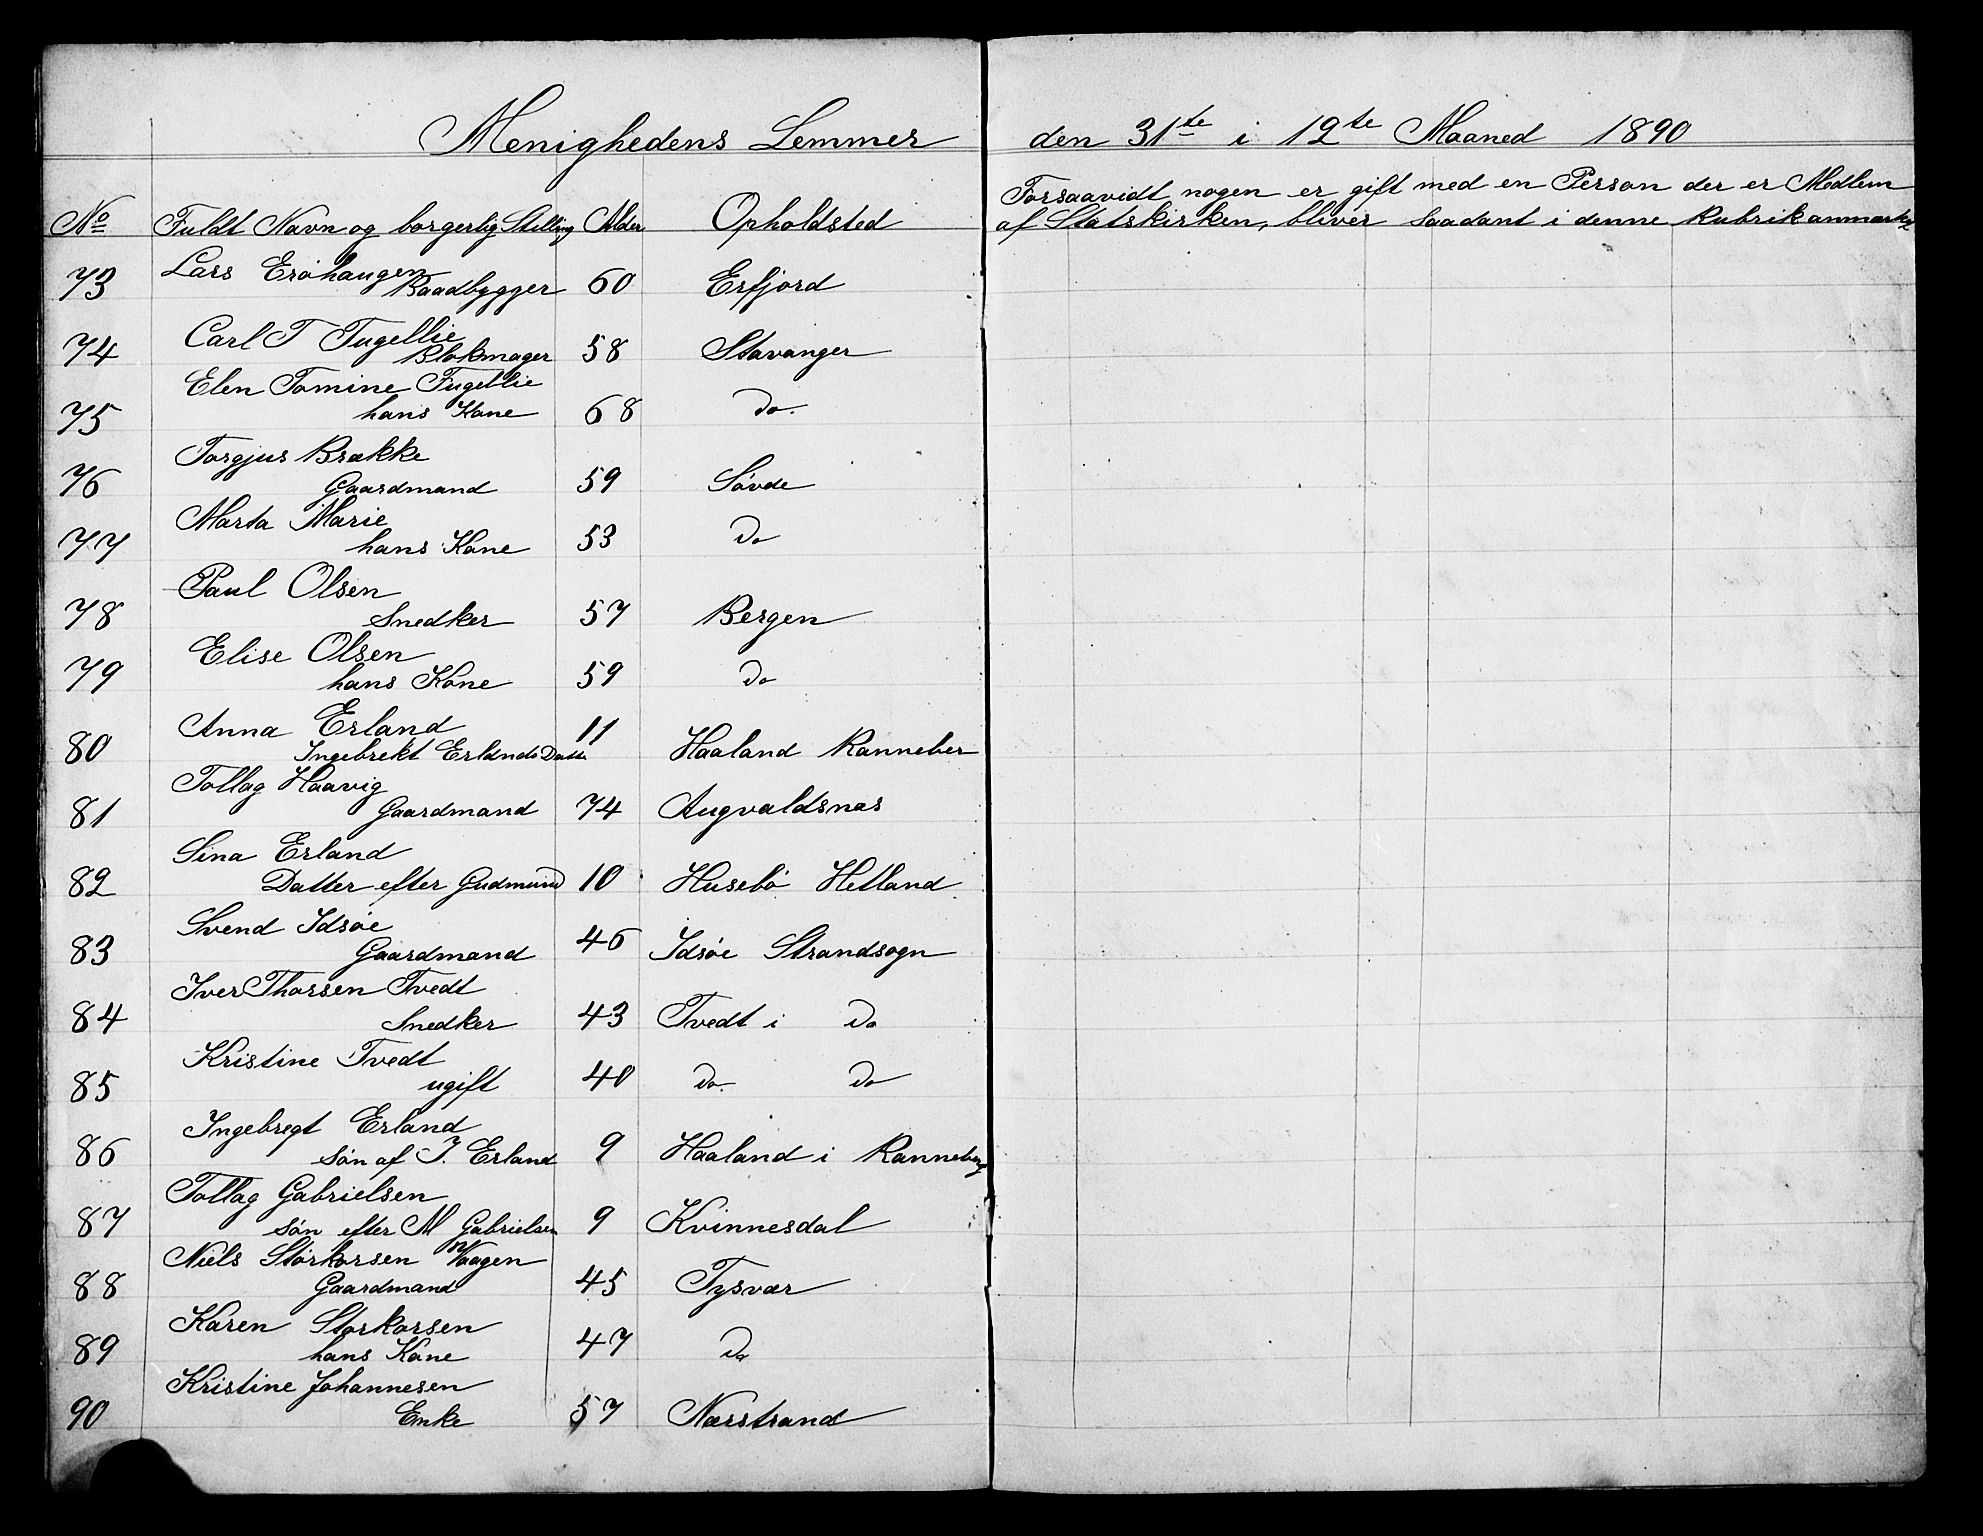 Menighedens Lemmer den 31te i 12te Maaned 1890
No Fuldt Navn og borgerlig Stilling Alder Opholdsted
Forsaavidt nogen er gift med en Person der er Medlem
af Statskirken, bliver saadant i denne Rubrik anmærket
73 Lars Erøhaugen
Baadbygger 60 Erfjord
74 Carl T Fugellie
Blokmager 58 Stavanger
75 Elen Tomine Fugellie
hans Kone 68 Do.
76 Torgjus Brække
Gaardmand 59 Søvde
77 Marta Marie
hans Kone 53 Do
78 Paul Olsen
Snedker 57 Bergen
79 Elise Olsen
hans Kone 59 Do
80 Anna Erland 11
Ingebrekt Erlands Datter Haaland Ranneber
81 Tollag Haavig
Gaardmand 74 Augvaldsnæs
82 Sina Erland
Datter efter Gudmund 10 Husebø Hetland
83 Svend Idsøe
Gaardmand 46 Idsøe Strandsogn
84 Iver Thorsen Tvedt
Snedker 43 Tvedt i Do
85 Kristine Tvedt
ugift 40 Do. Do
86 Ingebregt Erland
Søn af I. Erland 9 Haaland i Ranneberg
87 Tollag Gabrielsen
Søn efter M Gabrielsen 9 Kvinnesdal
88 Niels Storkorsen Vaagen
Gaardmand 45 Tysvær
89 Karen Storkorsen
hans Kone 47 Do
90 Kristine Johannesen
Enke 57 Nærstrand